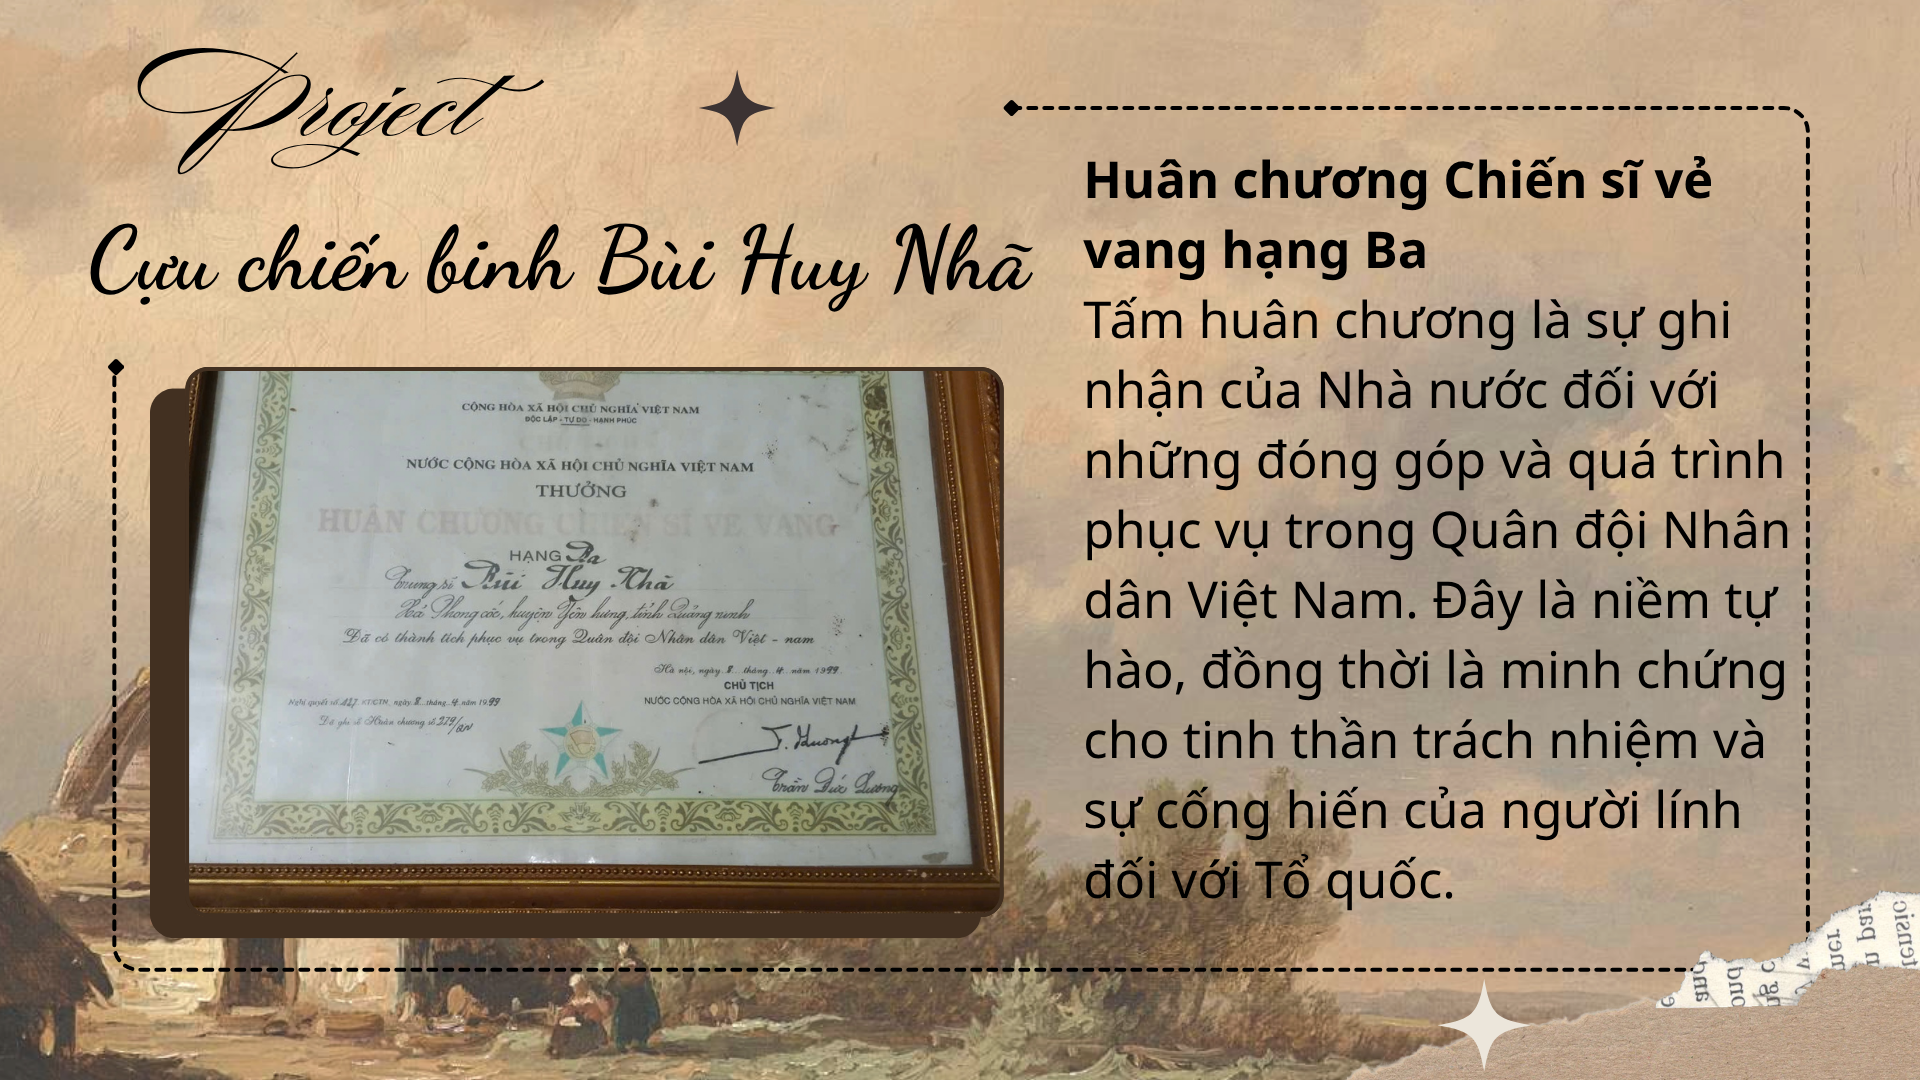 Project
Cựu chiến binh Bùi Huy Nhã
CỘNG HÒA XÃ HỘI CHỦ NGHĨA VIỆT NAM
ĐỘC LẬP - TỰ DO - HẠNH PHÚC
NƯỚC CỘNG HÒA XÃ HỘI CHỦ NGHĨA VIỆT NAM
THƯỞNG
HUÂN CHƯƠNG CHIẾN SĨ VẺ VANG
HẠNG Ba
Trung sĩ Bùi Huy Nhã
Xã Phong cốc, huyện Yên hưng, tỉnh Quảng ninh
Đã có thành tích phục vụ trong Quân đội Nhân dân Việt - nam
Hà nội, ngày 8 tháng 4 năm 1999
CHỦ TỊCH
NƯỚC CỘNG HÒA XÃ HỘI CHỦ NGHĨA VIỆT NAM
Nghị quyết số KT/CTN ngày 8 tháng 4 năm 1999
Đã ghi sổ Huân chương số 279/QN
T. Lương
Trần Đức Lương
Huân chương Chiến sĩ vẻ
vang hạng Ba
Tấm huân chương là sự ghi
nhận của Nhà nước đối với
những đóng góp và quá trình
phục vụ trong Quân đội Nhân
dân Việt Nam. Đây là niềm tự
hào, đồng thời là minh chứng
cho tinh thần trách nhiệm và
sự cống hiến của người lính
đối với Tổ quốc.